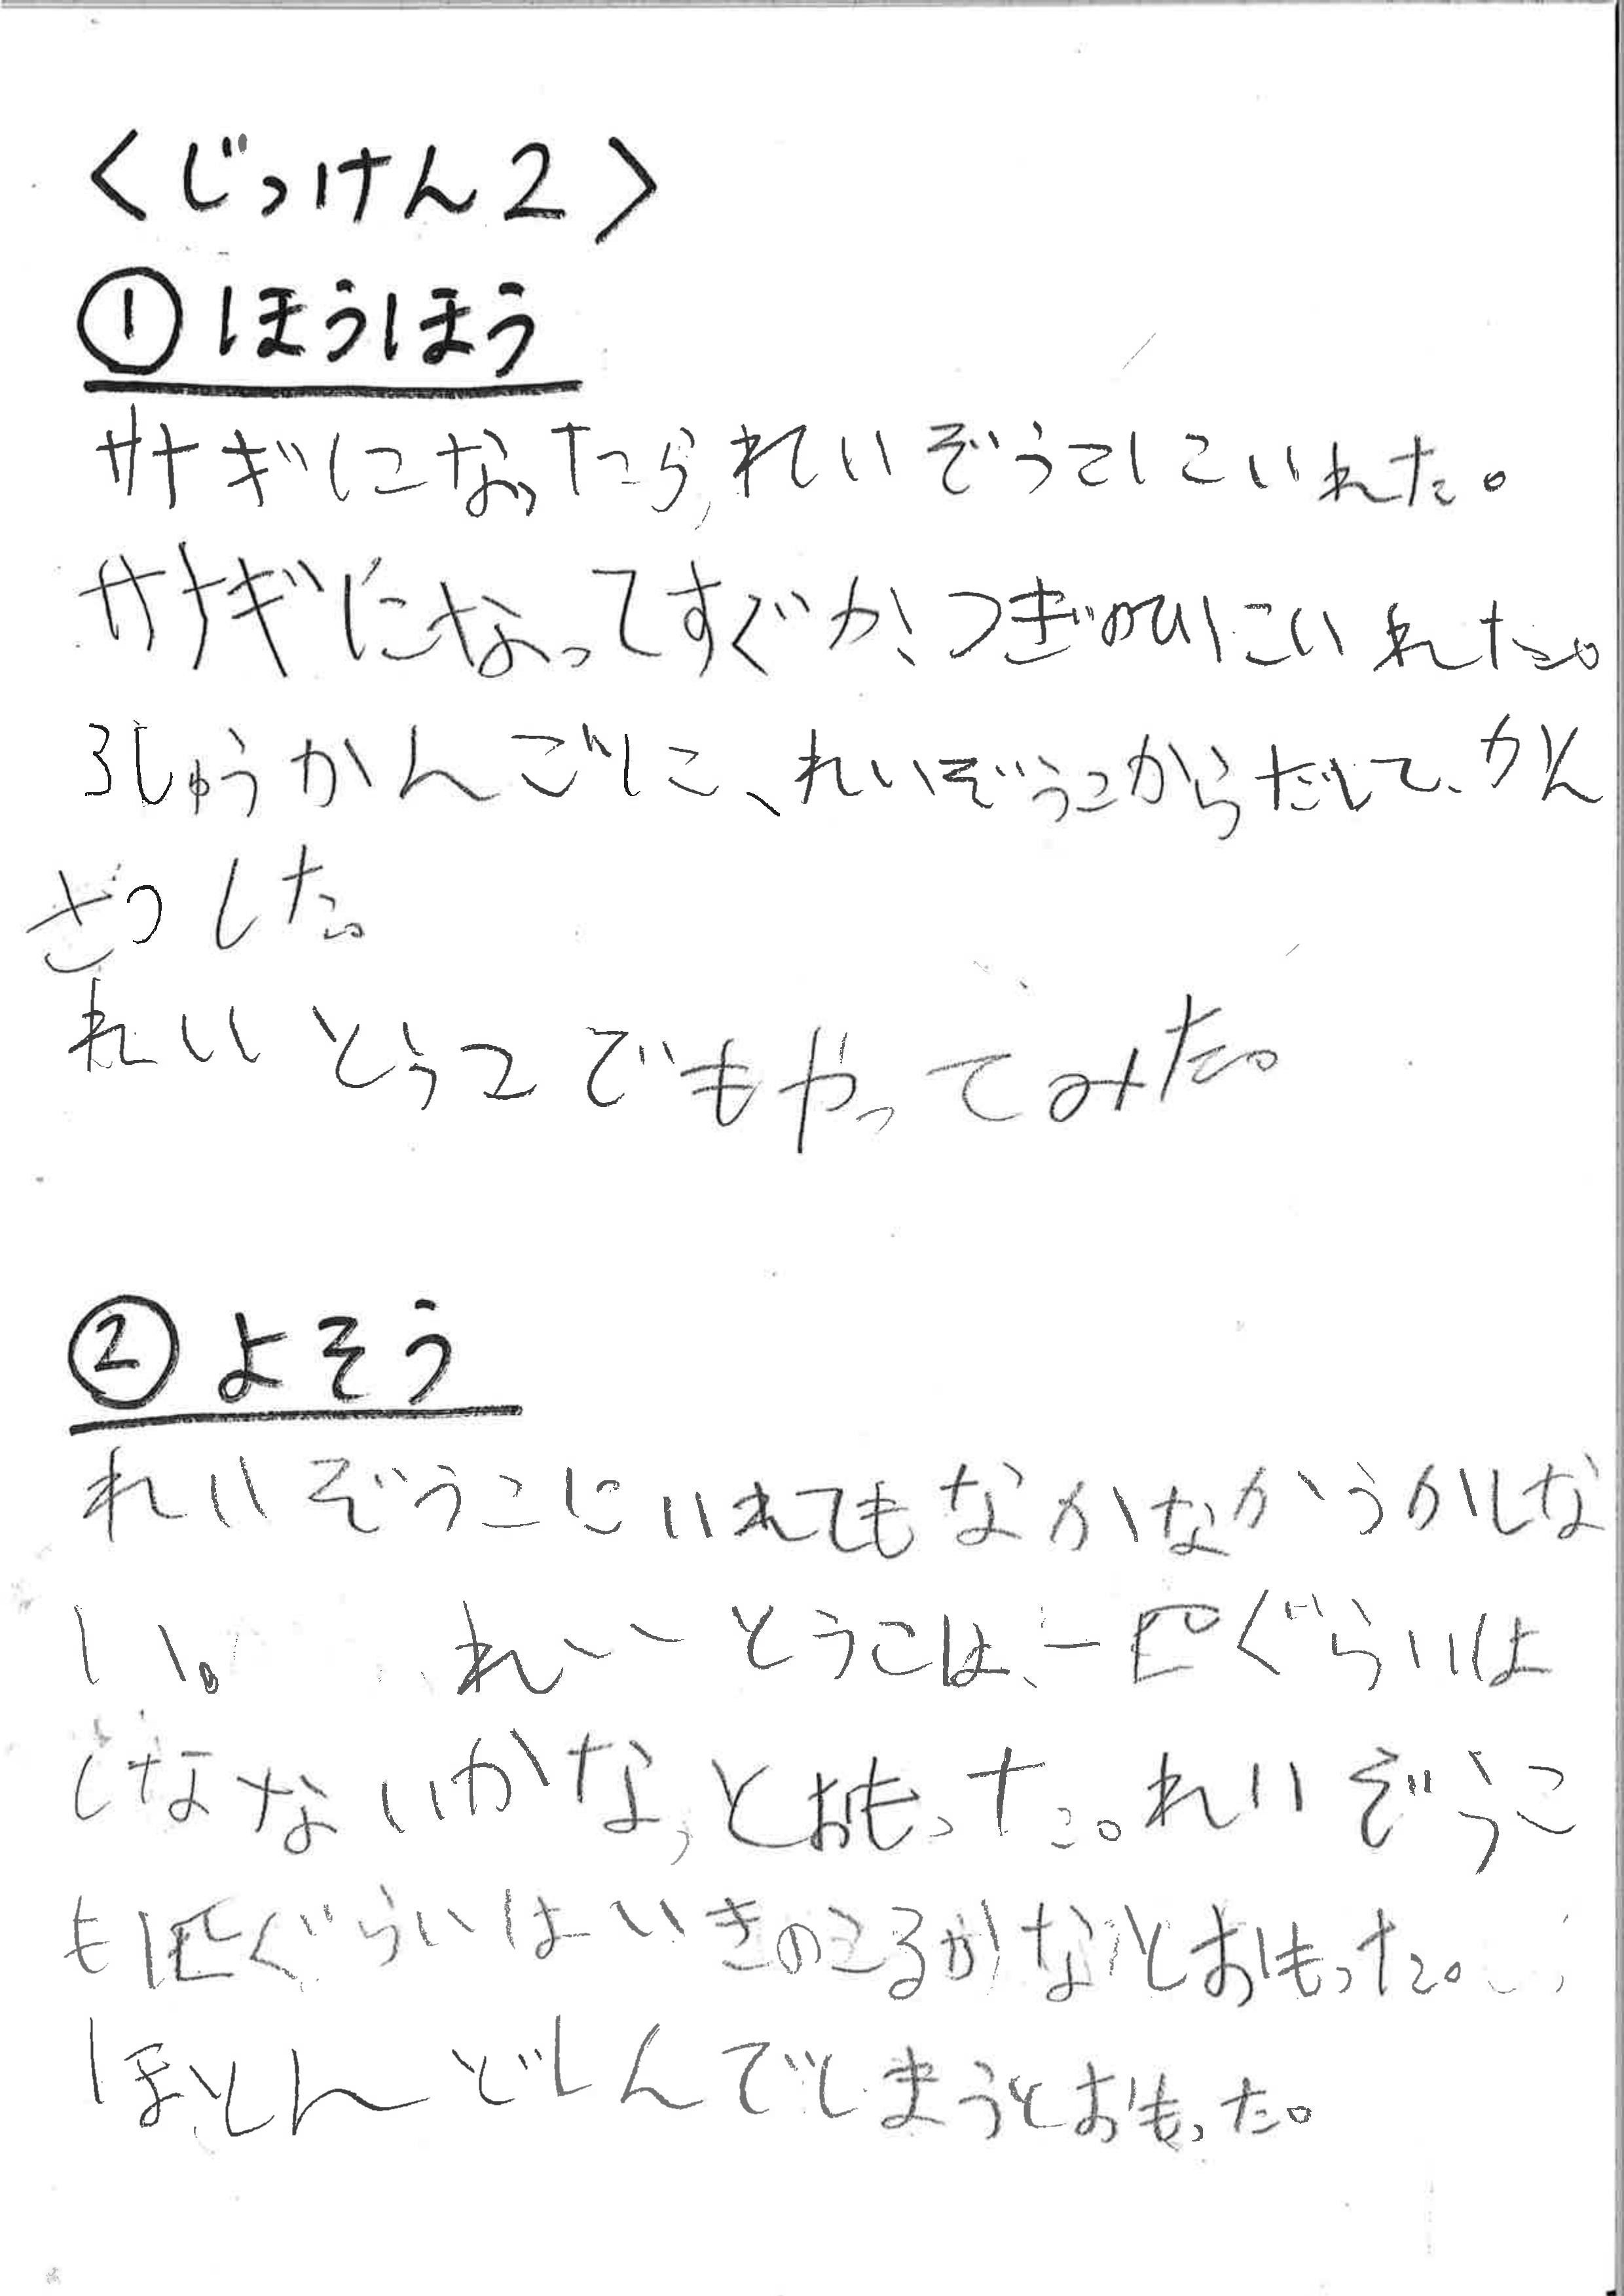 <じっけん2>
①ほうほう
サナギになったら,れいぞうこにいれた。
サナギになってすぐか、つぎのひにいれた。
3しゅうかんごに、れいぞうこからだして、かん
さつした。
れいとうこでもやってみた。
②よそう
れいぞうこにいれてもなかなかうかしな
い。れいとうこは、一匹ぐらいは
しなないかな,とおもった。れいぞうこ
も1匹ぐらいはいきのこるかなとおもった。
ほとんどしんでしまうとおもった。